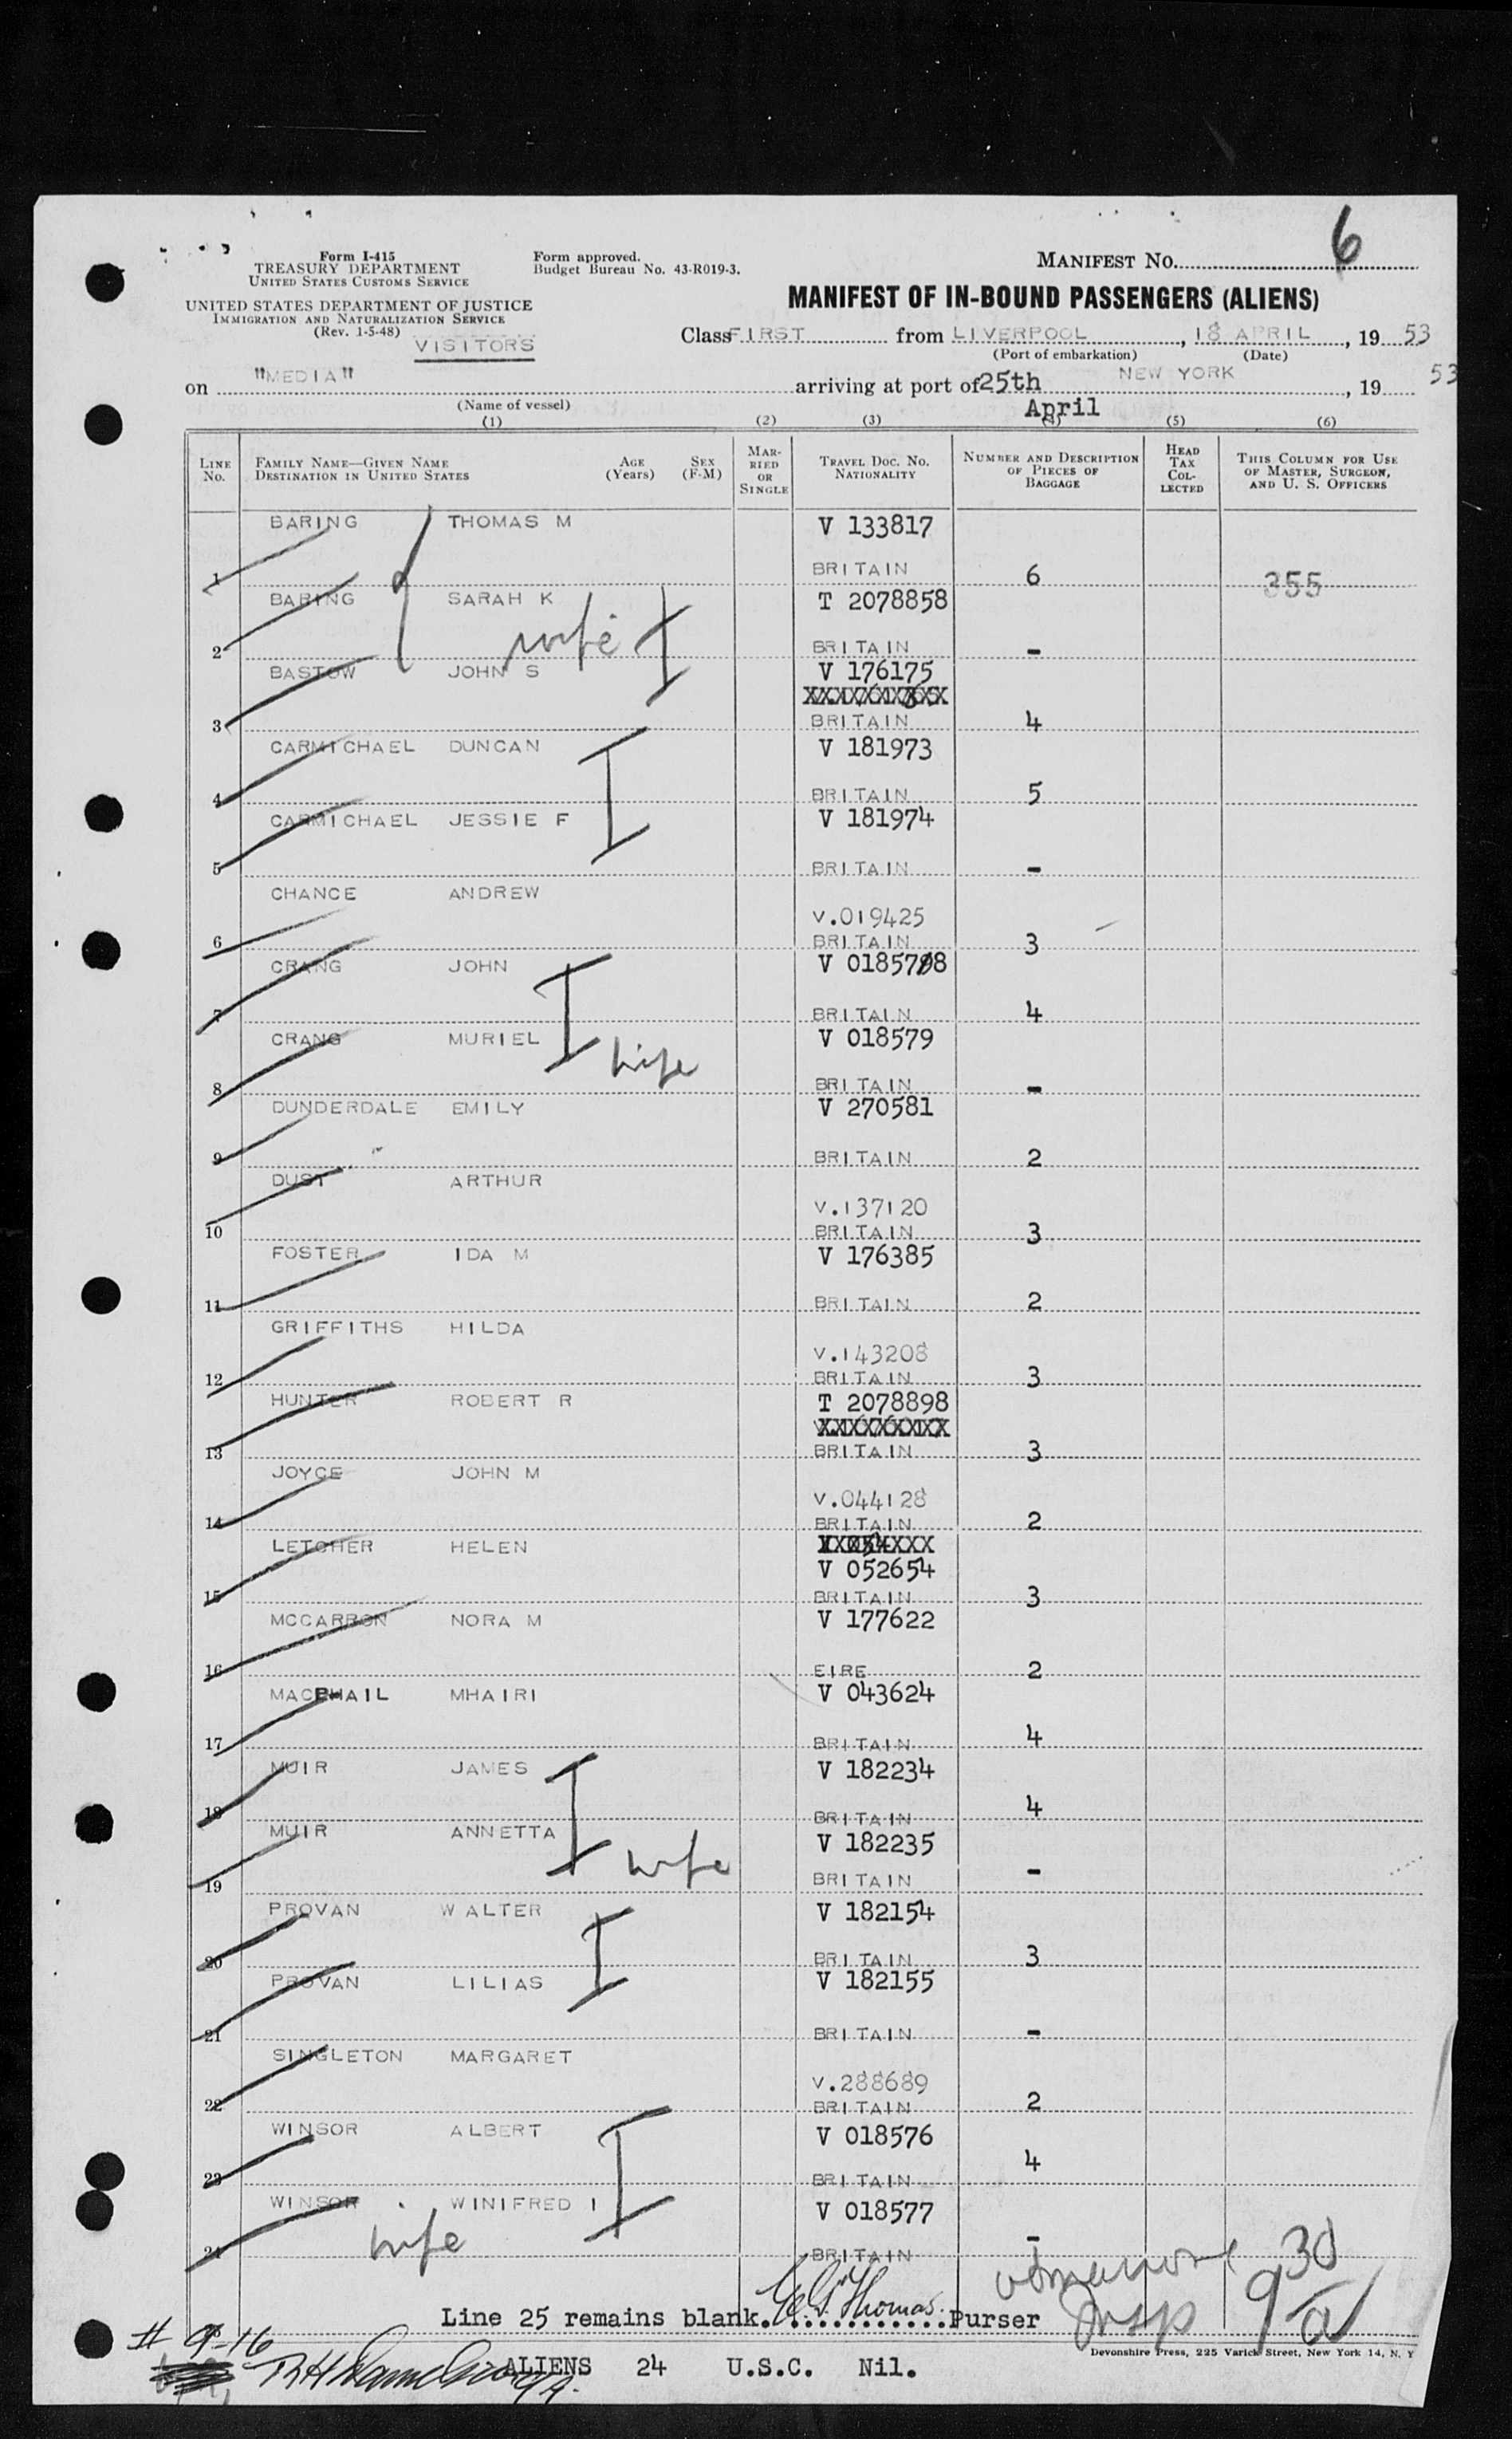 6
Form I-415
TREASURY DEPARTMENT
UNITED STATES CUSTOMS SERVICE
Form approved.
Budget Bureau No. 43-R019-3.
MANIFEST NO.
UNITED STATES DEPARTMENT OF JUSTICE
IMMIGRATION AND NATURALIZATION SERVICE
(Rev. 1-5-48)
VISITORS
MANIFEST OF IN-BOUND PASSENGERS (ALIENS)
Class FIRST from LIVERPOOL, 18 APRIL, 19 53
(Port of embarkation) (Date)
on "MEDIA" arriving at port of NEW YORK 25th April, 19 53
(Name of vessel)
(1) (2) (3) (4) (5) (6)
LINE NO. FAMILY NAME—GIVEN NAME DESTINATION IN UNITED STATES AGE (Years) SEX (F-M) MARRIED OR SINGLE TRAVEL DOC. NO. NATIONALITY NUMBER AND DESCRIPTION OF PIECES OF BAGGAGE HEAD TAX COLLECTED THIS COLUMN FOR USE OF MASTER, SURGEON, AND U. S. OFFICERS
BARING THOMAS M V 133817
1 BRITAIN 6 355
BARING SARAH K T 2078858
wife
2 BRITAIN -
BASTOW JOHN S V 176175
3 BRITAIN 4
CARMICHAEL DUNCAN V 181973
4 BRITAIN 5
CARMICHAEL JESSIE F V 181974
5 BRITAIN -
CHANCE ANDREW
V.019425
6 BRITAIN 3
CRANG JOHN V 018578
7 BRITAIN 4
CRANG MURIEL V 018579
wife
8 BRITAIN -
DUNDERDALE EMILY V 270581
9 BRITAIN 2
DUST ARTHUR
V.137120
10 BRITAIN 3
FOSTER IDA M V 176385
11 BRITAIN 2
GRIFFITHS HILDA
V.143208
12 BRITAIN 3
HUNTER ROBERT R T 2078898
13 BRITAIN 3
JOYCE JOHN M
V.044128
14 BRITAIN 2
LETCHER HELEN
V 052654
15 BRITAIN 3
MCCARRON NORA M V 177622
16 EIRE 2
MACPHAIL MHAIRI V 043624
17 BRITAIN 4
MUIR JAMES V 182234
18 BRITAIN 4
MUIR ANNETTA V 182235
wife
19 BRITAIN -
PROVAN WALTER V 182154
20 BRITAIN 3
PROVAN LILIAS V 182155
21 BRITAIN -
SINGLETON MARGARET
V.288689
22 BRITAIN 2
WINSOR ALBERT V 018576
23 BRITAIN 4
WINSOR WINIFRED I V 018577
wife
24 BRITAIN -
9 30 a
Line 25 remains blank. Thomas. Purser
Insp
# 9-16
Devonshire Press, 225 Varick Street, New York 14, N. Y
ALIENS 24 U.S.C. Nil.